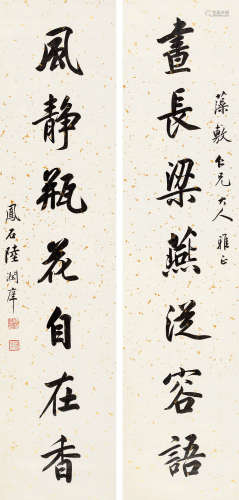 藻敷仁兄大人雅正
畫長梁燕從容語
風静瓶花自在香
鳳石陸潤庠